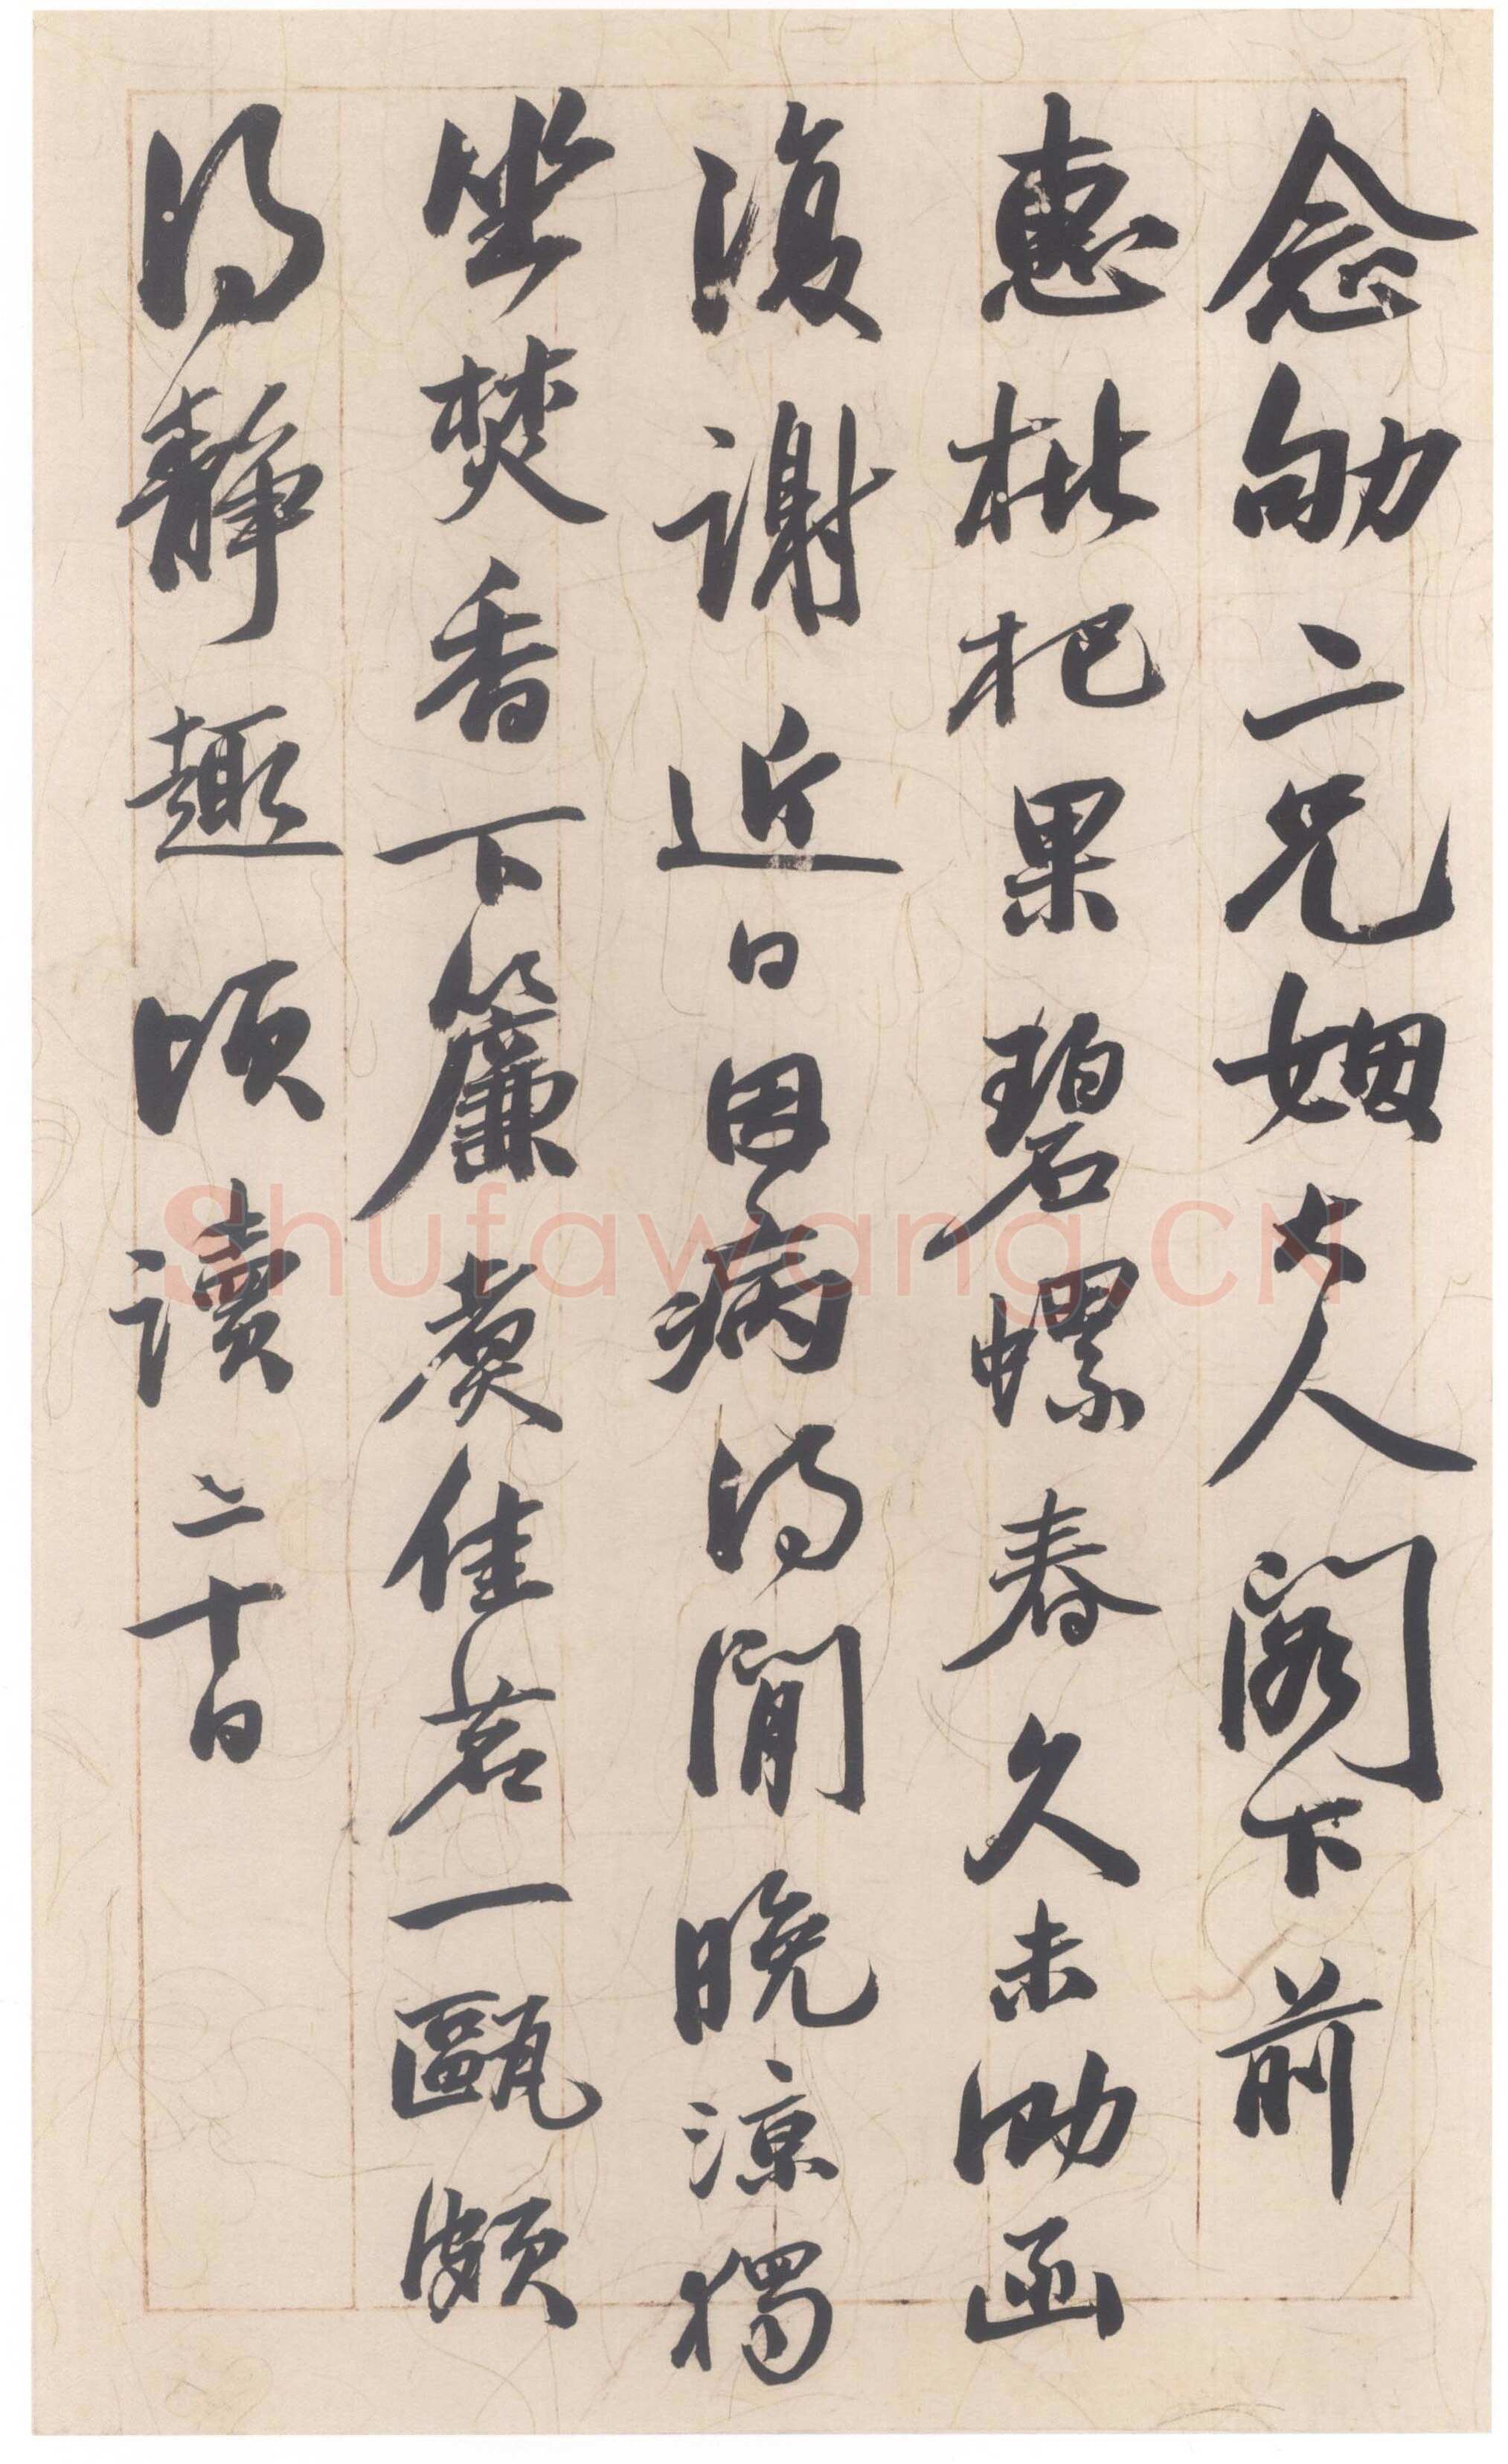 念劬二兄姻大人閣下前
惠枇杷果碧螺春久未泐函
復謝近日因病得閒晚涼獨
坐焚香下簾煑佳茗一甌頗
得靜趣頃讀二十日
Shufawang.CN